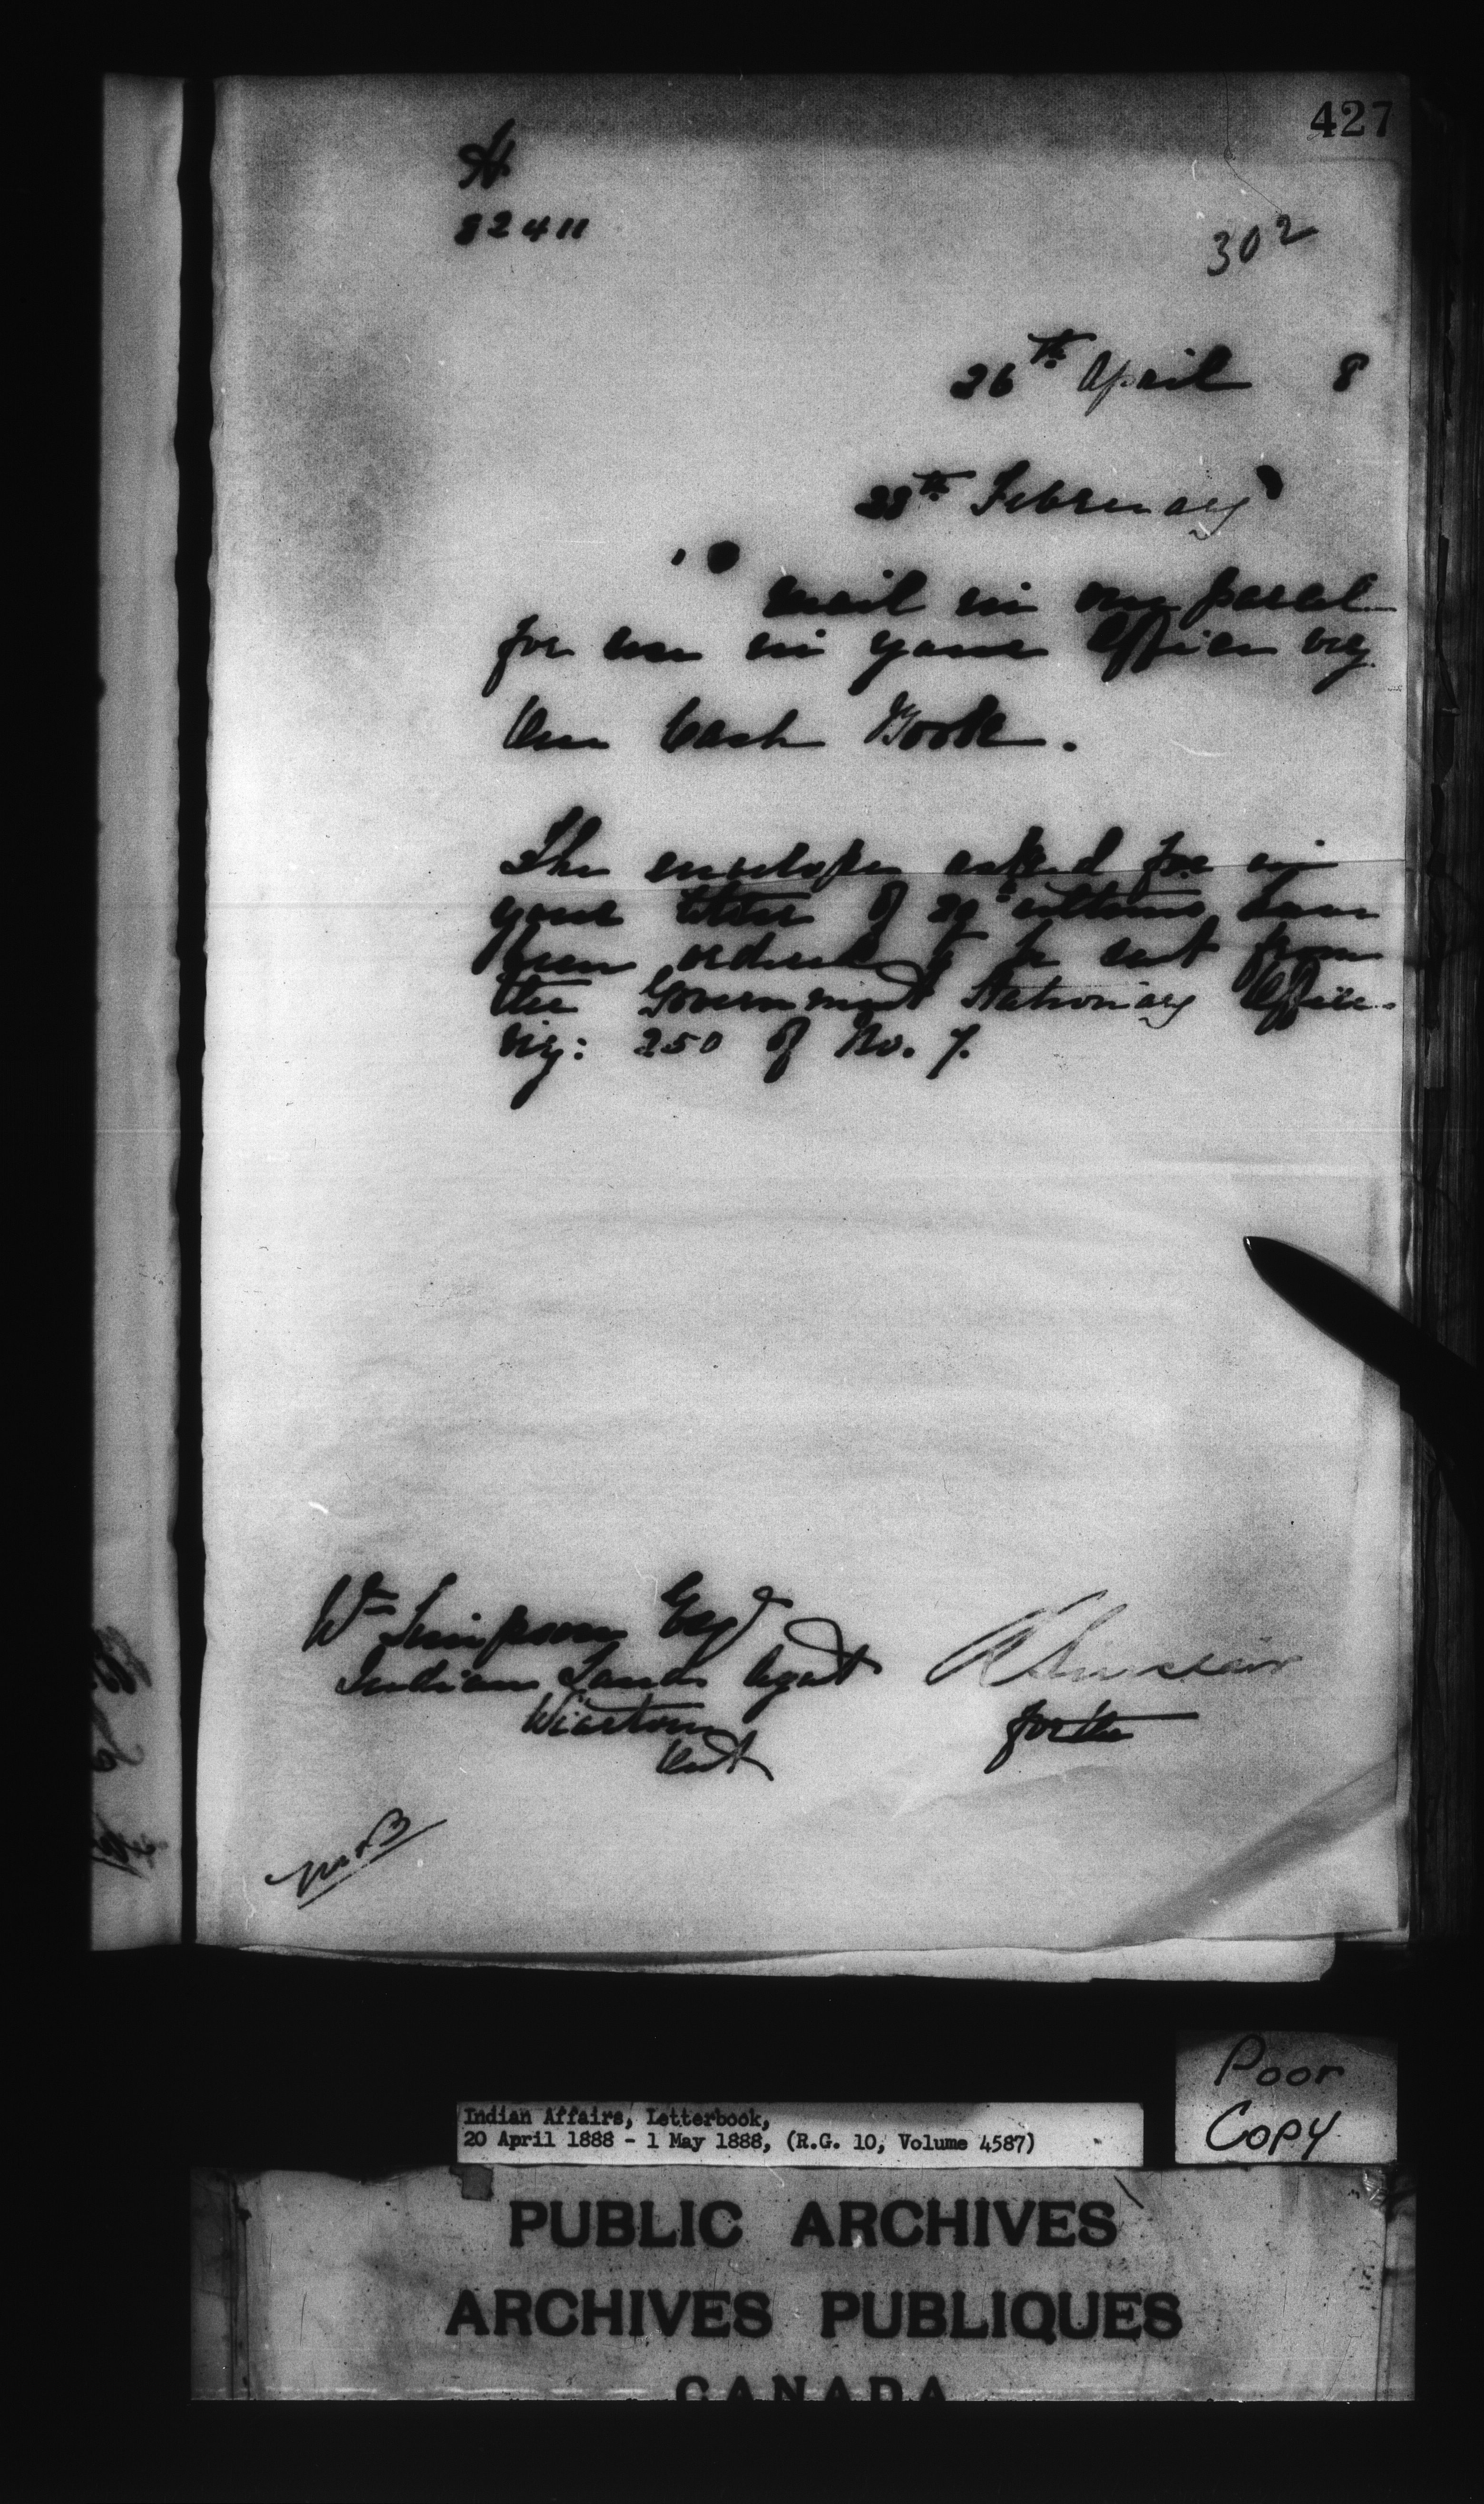 427
H.
82411
302
26th April 8
28th February
mail in one parcel
for use in your Office viz
One Cash Book.
The envelopes asked for in
your letter of 29th ultimo, have
been ordered to be sent from
the Government Stationery Office
viz: 250 of No. 7.
Wm Simpson Esqr
Indian Lands Agent
Wiarton
Ont
R Sinclair
for the
Poor
Copy
Indian Affairs, Letterbook,
20 April 1888 - 1 May 1888, (R.G. 10, Volume 4587)
PUBLIC ARCHIVES
ARCHIVES PUBLIQUES
CANADA